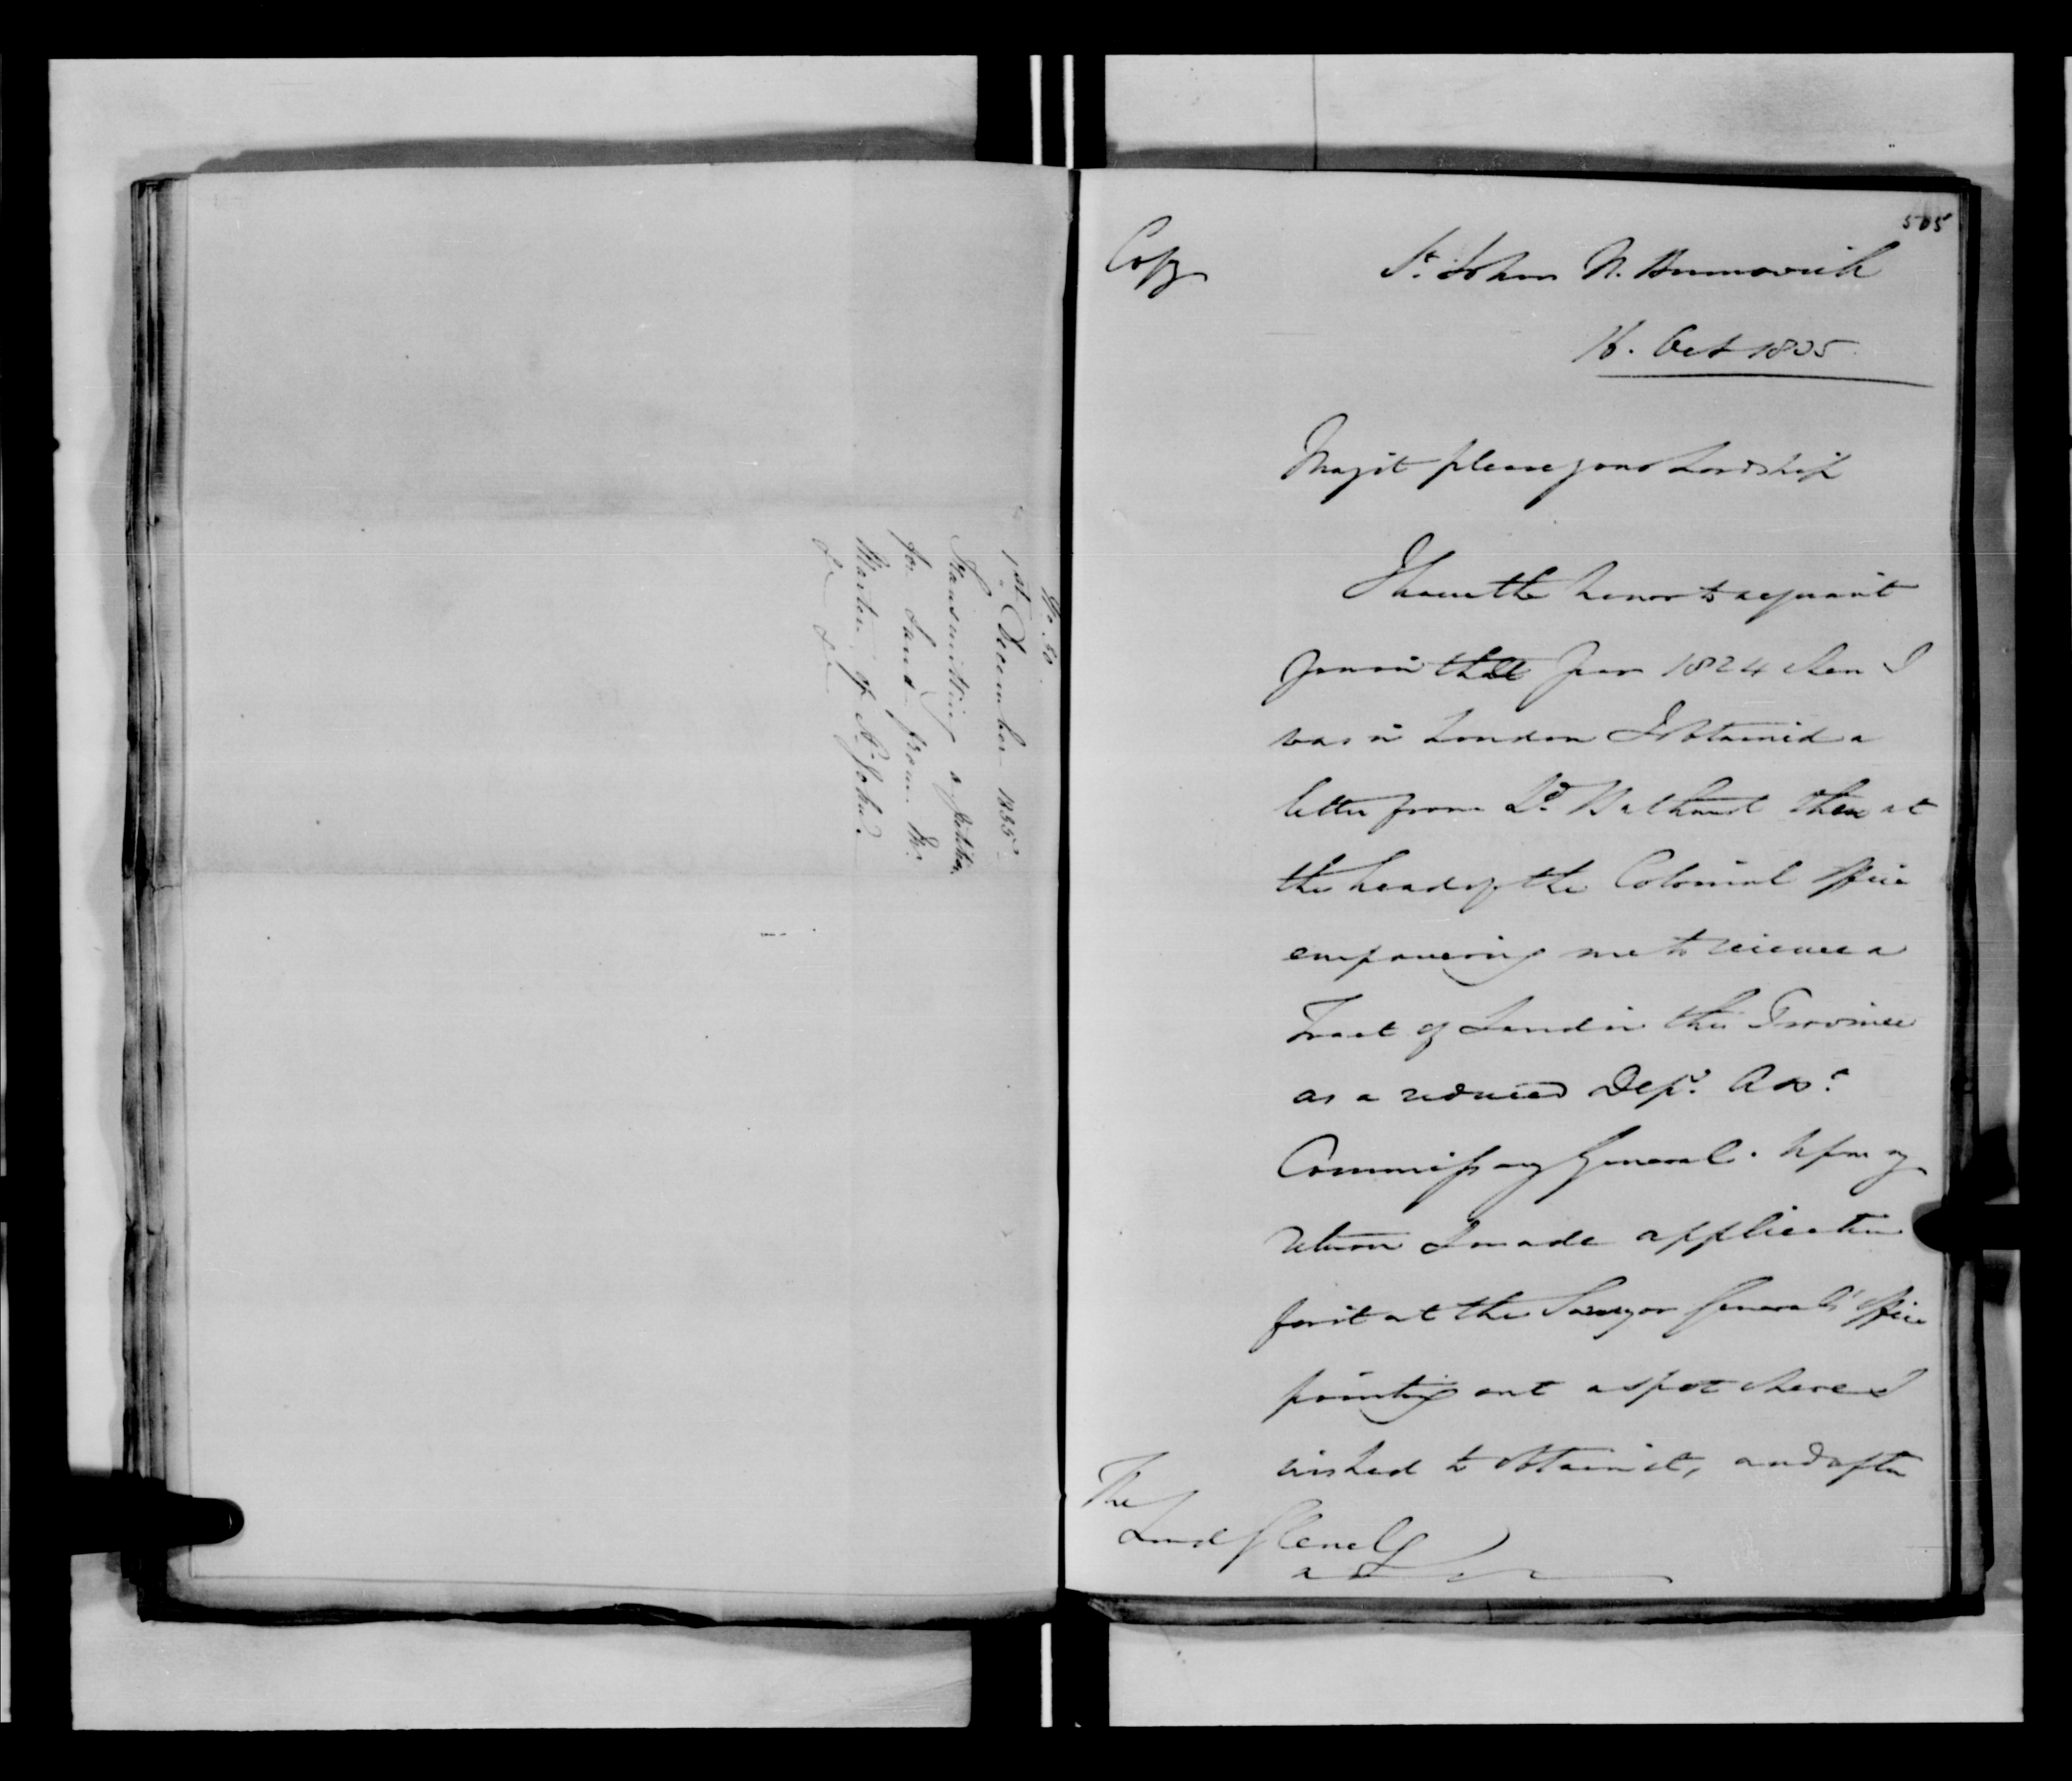 No. 50.
1st December 1835.
Transmitting a petition
for Land from Mr.
of St. John.
505
Copy
St. John N. Brunswick
16. Oct 1835
May it please your Lordship
I have the honor to acquaint
you in the Year 1824 when I
was in London I obtained a
letter from Ld. Bathurst then at
the head of the Colonial Office
empowering me to receive a
Tract of Land in this Province
as a reduced Depy. Asst.
Commissary General. Upon my
return I made application
for it at the Surveyor General's Office
pointing out a spot where I
wished to obtain it, and after
The
Lord Glenelg